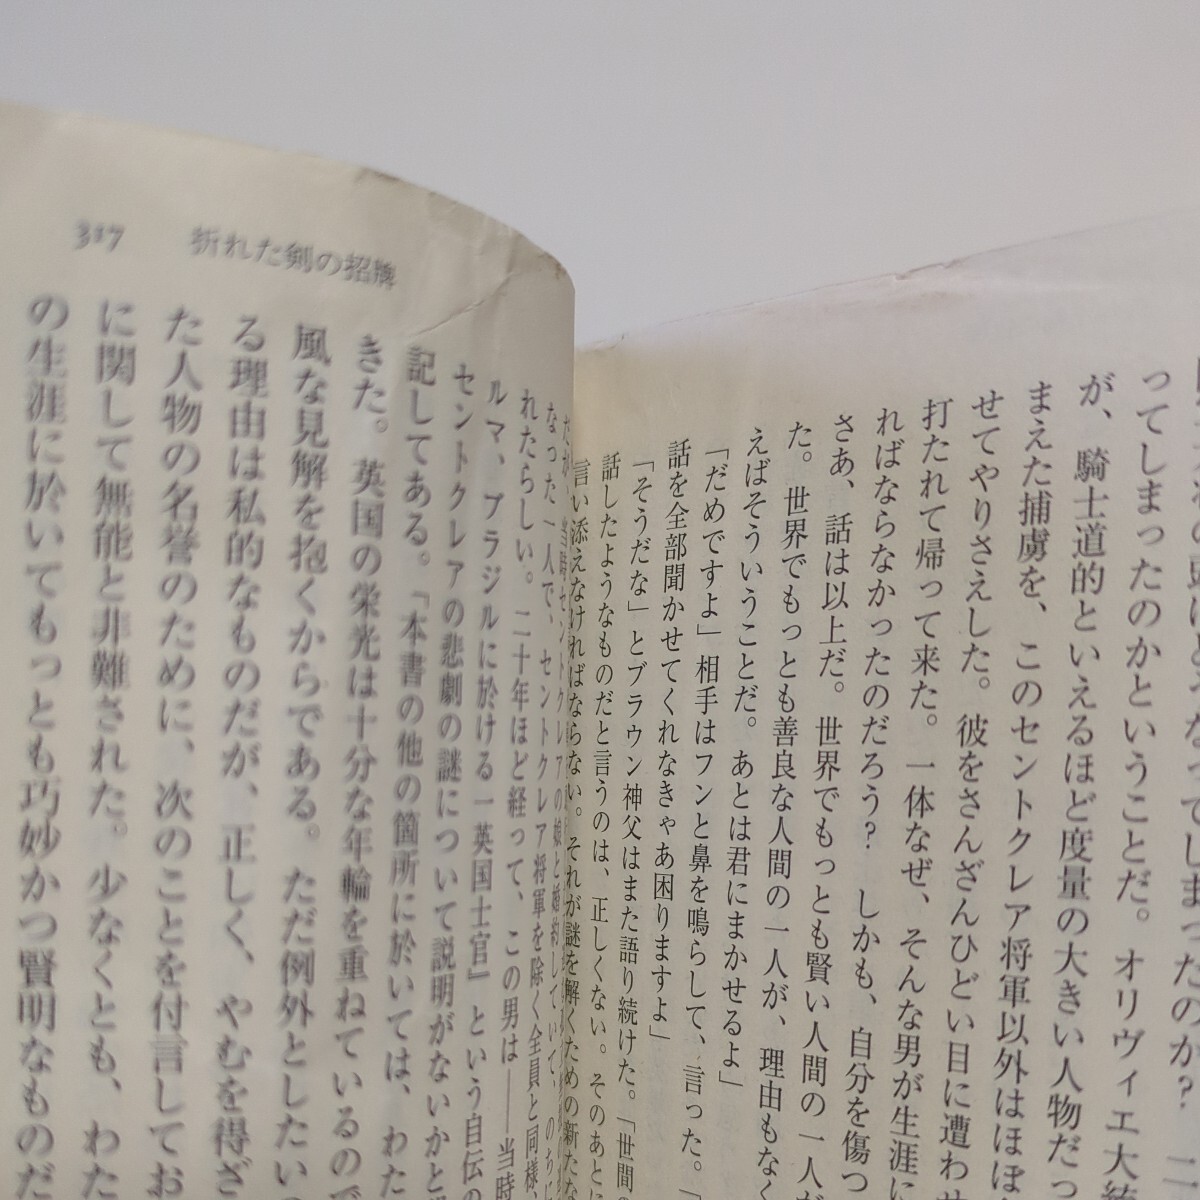 ってしまったのかということだ。オリヴィエ大統
が、騎士道的といえるほど度量の大きい人物だっ
まえた捕虜を、このセントクレア将軍以外はほぼ
せてやりさえした。彼をさんざんひどい目に遭わせ
打たれて帰って来た。一体なぜ、そんな男が生涯に
ればならなかったのだろう？　しかも、自分を傷つ
さあ、話は以上だ。世界でもっとも賢い人間の一人が
た。世界でもっとも善良な人間の一人が、理由もなく
えばそういうことだ。あとは君にまかせるよ」
「だめですよ」相手はフンと鼻を鳴らして、言った。「
話を全部聞かせてくれなきゃあ困りますよ」
「そうだな」とブラウン神父はまた語り続けた。「世間の
話したようなものだと言うのは、正しくない。そのあとに
言い添えなければならない。それが謎を解くための新たな
317　折れた剣の招牌
だが、当時セントクレアの娘と婚約していて、のちに
なった一人で、セントクレア将軍を除く全員と同様、
れたらしい。二十年ほど経って、この男は――当時
ルマ、ブラジルに於ける一英国士官』という自伝の
セントクレアの悲劇の謎について説明がないかと
記してある。「本書の他の箇所に於いては、わた
きた。英国の栄光は十分な年輪を重ねているので
風な見解を抱くからである。ただ例外としたい
る理由は私的なものだが、正しく、やむを得ざ
た人物の名誉のために、次のことを付言してお
に関して無能と非難された。少なくとも、わた
の生涯に於いてもっとも巧妙かつ賢明なものだ